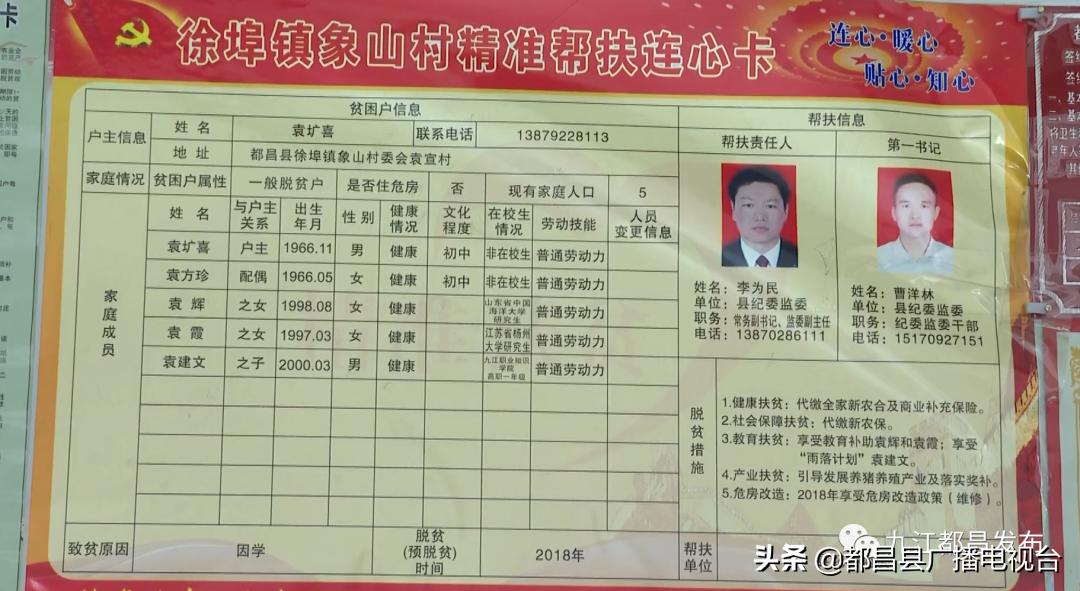 徐埠镇象山村精准帮扶连心卡
连心·暖心
贴心·知心
贫困户信息
户主信息 姓名 袁圹喜 联系电话 13879228113
地址 都昌县徐埠镇象山村委会袁宣村
家庭情况 贫困户属性 一般脱贫户 是否住危房 否 现有家庭人口 5
家庭成员
姓名 与户主关系 出生年月 性别 健康情况 文化程度 在校生情况 劳动技能 人员变更信息
袁圹喜 户主 1966.11 男 健康 初中 非在校生 普通劳动力
袁方珍 配偶 1966.05 女 健康 初中 非在校生 普通劳动力
袁辉 之女 1998.08 女 健康 山东省中国海洋大学研究生 普通劳动力
袁霞 之女 1997.03 女 健康 江苏省杨州大学研究生 普通劳动力
袁建文 之子 2000.03 男 健康 九江职业知识学院高职一年级 普通劳动力
致贫原因 因学 脱贫(预脱贫)时间 2018年
帮扶信息
帮扶责任人 第一书记
姓名：李为民
单位：县纪委监委
职务：常务副书记、监委副主任
电话：13870286111
姓名：曹洋林
单位：县纪委监委
职务：纪委监委干部
电话：15170927151
脱贫措施
1.健康扶贫：代缴全家新农合及商业补充保险。
2.社会保障扶贫：代缴新农保。
3.教育扶贫：享受教育补助袁辉和袁霞；享受
“雨落计划”袁建文。
4.产业扶贫：引导发展养猪养殖产业及落实奖补。
5.危房改造：2018年享受危房改造政策（维修）。
帮扶单位
九江都昌发布
头条 @都昌县广播电视台